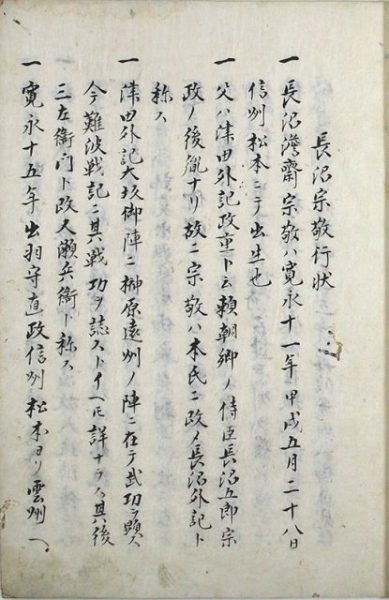 長沼宗敬行状
一 長沼澹齋宗敬ハ寛永十一年甲戌五月二十八日
信州松本ニテ出生也
一 父ハ津田外記政重ト云頼朝卿ノ侍臣長沼五郎宗
政ノ後胤ナリ故ニ宗敬ハ本氏ニ改メ長沼外記ト
称ス
一 津田外記大坂御陣ニ榊原遠州ノ陣ニ在テ武功ヲ顕ス
今難波戦記ニ其戦功ヲ誌ストイヘ𪜈詳ナラス其後
三左衛門ト改又瀬兵衛ト称ス
一 寛永十五年出羽守直政信州松本ヨリ雲州へ